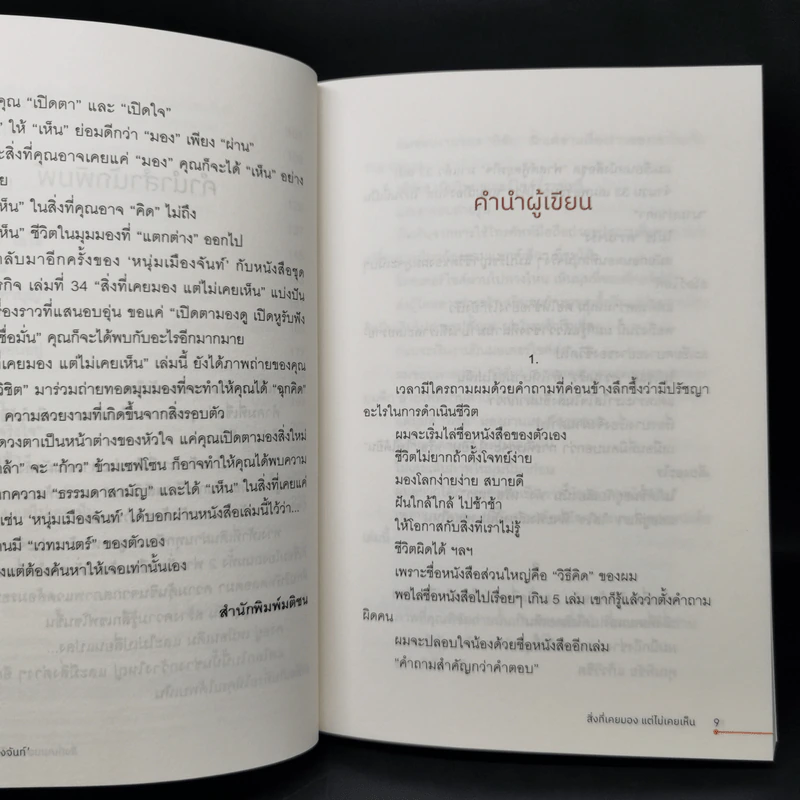 คุณ “เปิดตา” และ “เปิดใจ”
ให้ “เห็น” ย่อมดีกว่า “มอง” เพียง “ผ่าน”
ะสิ่งที่คุณอาจเคยแค่ “มอง” คุณก็จะได้ “เห็น” อย่าง
ย
ห็น” ในสิ่งที่คุณอาจ “คิด” ไม่ถึง
ห็น” ชีวิตในมุมมองที่ “แตกต่าง” ออกไป
ลับมาอีกครั้งของ ‘หนุ่มเมืองจันท์’ กับหนังสือชุด
กิจ เล่มที่ 34 “สิ่งที่เคยมอง แต่ไม่เคยเห็น” แบ่งปัน
องราวที่แสนอบอุ่น ขอแค่ “เปิดตามองดู เปิดหูรับฟัง
ชื่อมั่น” คุณก็จะได้พบกับอะไรอีกมากมาย
ที่เคยมอง แต่ไม่เคยเห็น” เล่มนี้ ยังได้ภาพถ่ายของคุณ
วิชิต” มาร่วมถ่ายทอดมุมมองที่จะทำให้คุณได้ “ฉุกคิด”
ความสวยงามที่เกิดขึ้นจากสิ่งรอบตัว
ดวงตาเป็นหน้าต่างของหัวใจ แค่คุณเปิดตามองสิ่งใหม่
ล้า” จะ “ก้าว” ข้ามเซฟโซน ก็อาจทำให้คุณได้พบความ
กความ “ธรรมดาสามัญ” และได้ “เห็น” ในสิ่งที่เคยแค่
เช่น ‘หนุ่มเมืองจันท์’ ได้บอกผ่านหนังสือเล่มนี้ไว้ว่า...
นมี “เวทมนตร์” ของตัวเอง
งแต่ต้องค้นหาให้เจอเท่านั้นเอง
สำนักพิมพ์มติชน
องจันท์’
คำนำผู้เขียน
1.
เวลามีใครถามผมด้วยคำถามที่ค่อนข้างลึกซึ้งว่ามีปรัชญา
อะไรในการดำเนินชีวิต
ผมจะเริ่มไล่ชื่อหนังสือของตัวเอง
ชีวิตไม่ยากถ้าตั้งโจทย์ง่าย
มองโลกง่ายง่าย สบายดี
ฝันใกล้ใกล้ ไปช้าช้า
ให้โอกาสกับสิ่งที่เราไม่รู้
ชีวิตผิดได้ ฯลฯ
เพราะชื่อหนังสือส่วนใหญ่คือ “วิธีคิด” ของผม
พอไล่ชื่อหนังสือไปเรื่อยๆ เกิน 5 เล่ม เขาก็รู้แล้วว่าตั้งคำถาม
ผิดคน
ผมจะปลอบใจน้องด้วยชื่อหนังสืออีกเล่ม
"คำถามสำคัญกว่าคำตอบ"
สิ่งที่เคยมอง แต่ไม่เคยเห็น 9